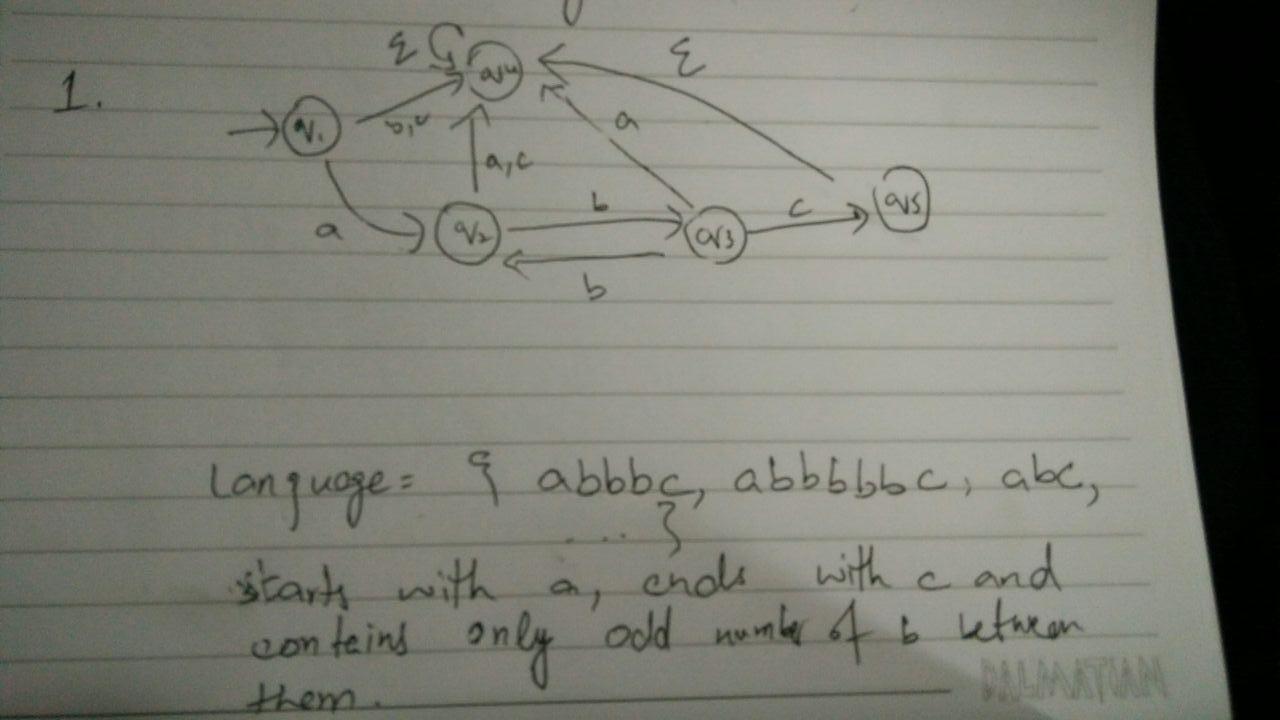 1.
Σ
q4
Σ
q1
b,c
a
a,c
a
q2
b
q3
c
q5
b
Language = { abbbc, abbbbbc, abc,
... }
starts with a, ends with c and
contains only odd number of b between
them.
DALMATIAN